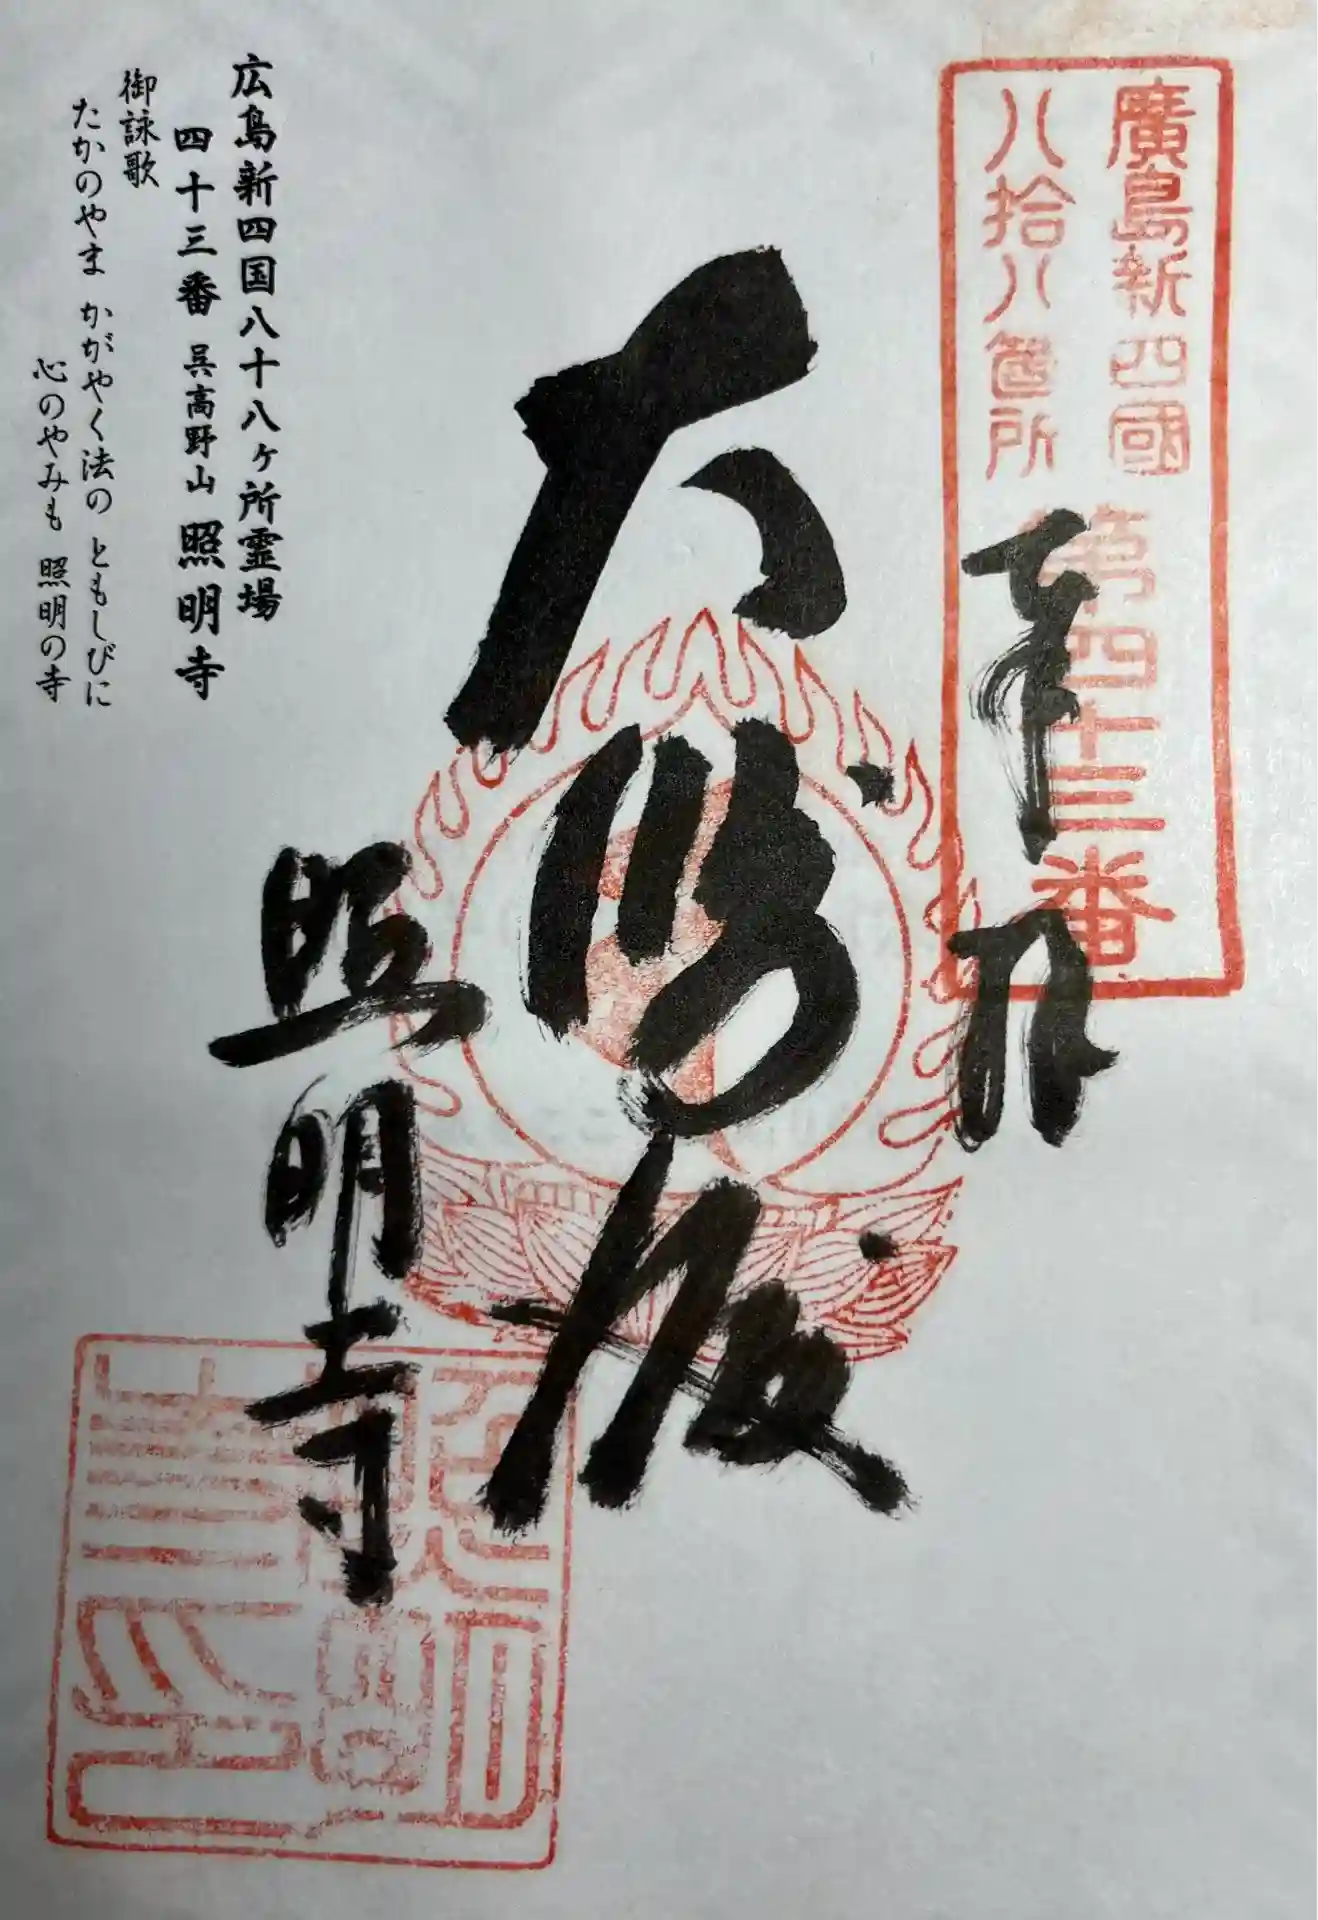 廣島新四國
八拾八箇所
第四十三番
大師殿
照明寺
広島新四国八十八ヶ所霊場
四十三番 呉高野山 照明寺
御詠歌
たかのやま かがやく法の ともしびに
心のやみも 照明の寺